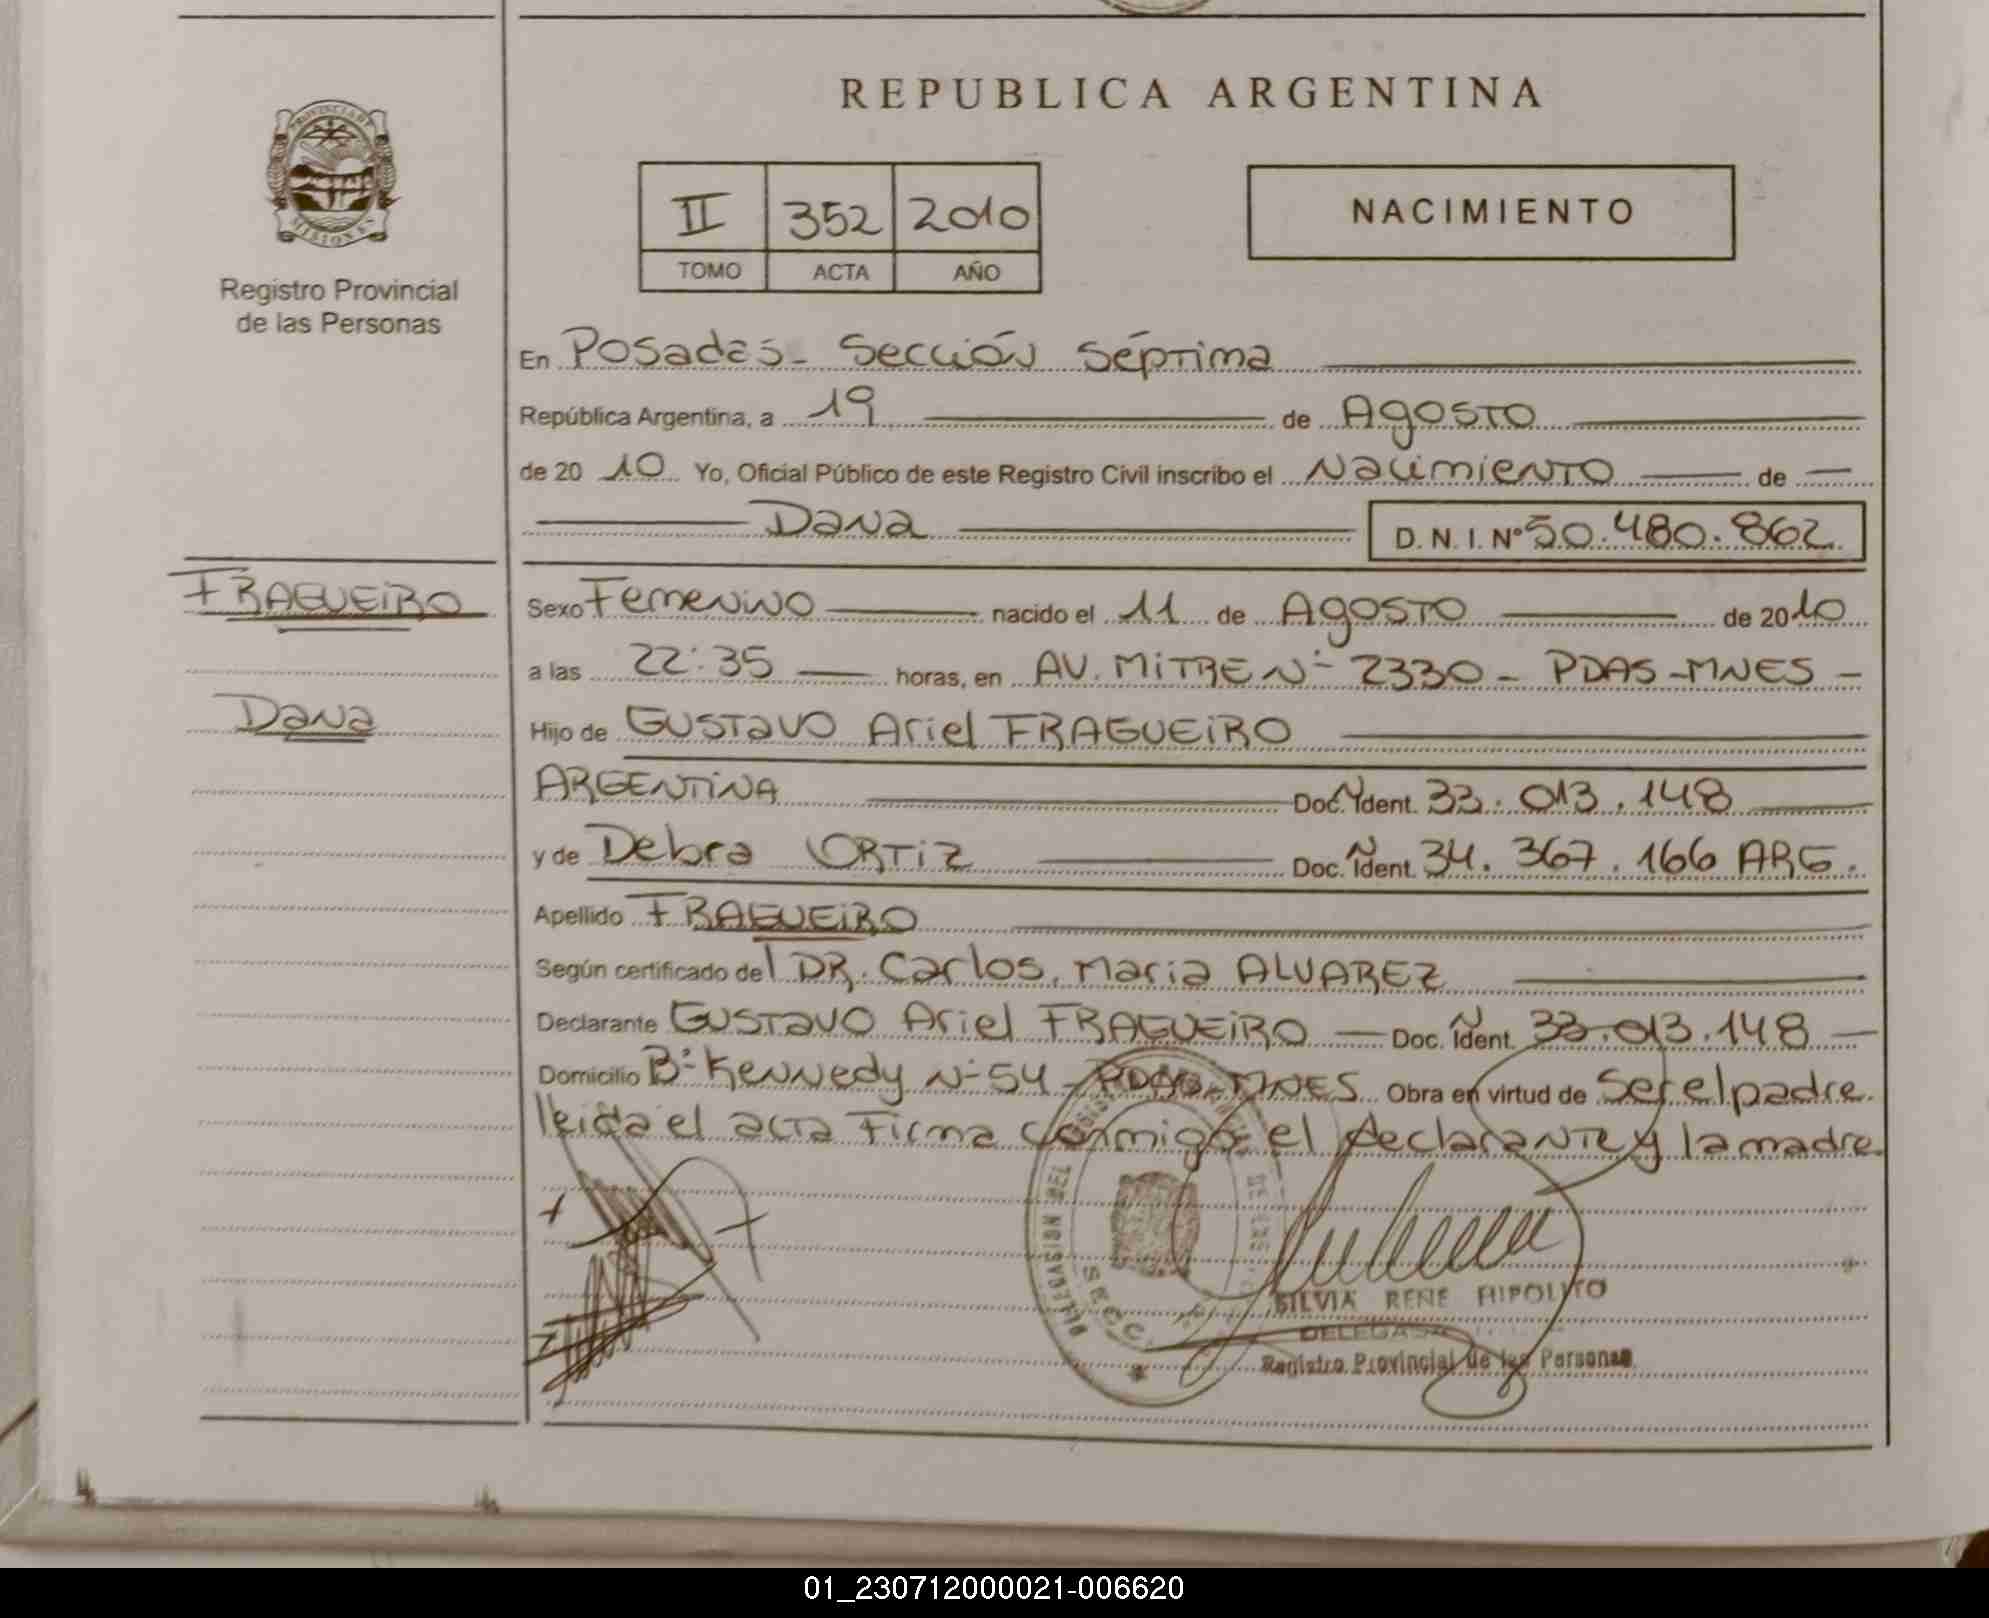 REPUBLICA ARGENTINA
PROVINCIA DE
MISIONES
Registro Provincial
de las Personas
II 352 2010
TOMO ACTA AÑO
NACIMIENTO
En Posadas - Sección Séptima
República Argentina, a 19 de Agosto
de 2010 Yo, Oficial Público de este Registro Civil inscribo el Nacimiento de
Dana D.N.I. Nº 50.480.862
FRAGUEIRO
Dana
Sexo Femenino nacido el 11 de Agosto de 2010
a las 22:35 horas, en AV. MITRE Nº 2330 - PDAS - MNES -
Hijo de GUSTAVO Ariel FRAGUEIRO
ARGENTINA Doc. Ident. 33.013.148
y de Debra ORTIZ Doc. Ident. 34.367.166 ARG.
Apellido FRAGUEIRO
Según certificado del DR. Carlos María ALVAREZ
Declarante GUSTAVO Ariel FRAGUEIRO Doc. Ident. 33.013.148
Domicilio Bº Kennedy Nº 54 - PDAS - MNES Obra en virtud de ser el padre.
leida el acta Firma conmigo el declarante y la madre.
DELEGACION DEL
SECC.
SILVIA RENE HIPOLITO
DELEGADA
Registro Provincial de las Personas
01_230712000021-006620